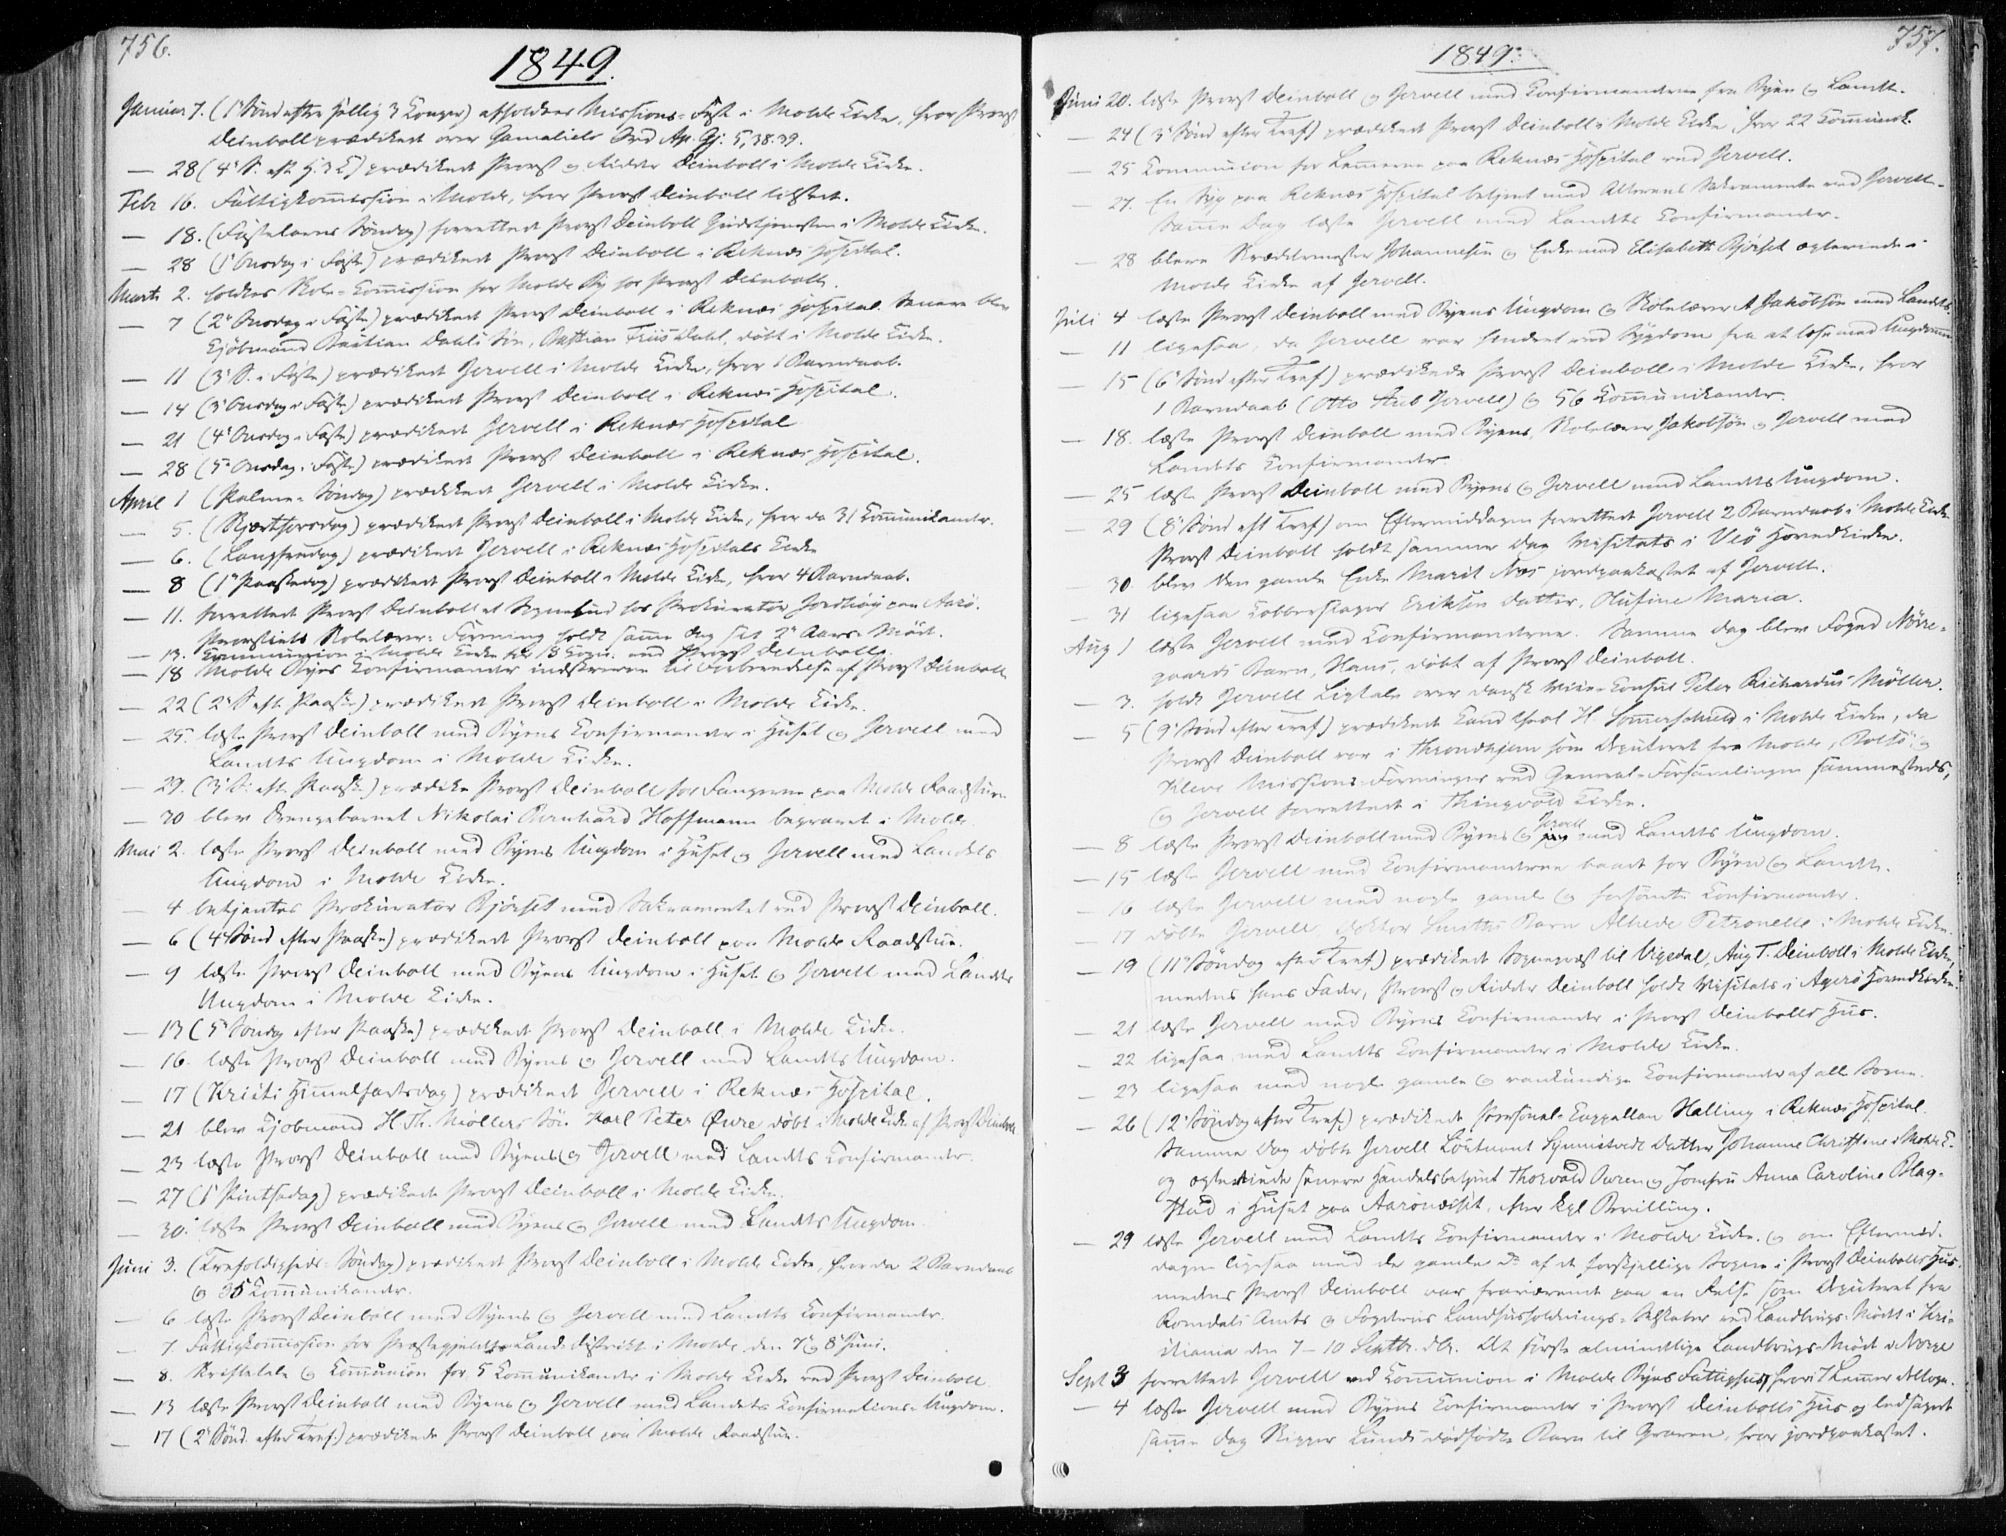 756.
1849.
Januar 7. (1ste Sönd efter Hellig 3 Konger) afholdtes Missions-Fest i Molde Kirke, hvor Provst
Deinboll prædikede over Gamaliels Ord Ap. Gj. 5, 38. 39.
— 28 (4de S. eft. H. 3 K) prædikede Provst og Ridder Deinboll i Molde Kirke.
Febr 16. Fattigkommission i Molde, hvor Provst Deinboll tilstede.
— 18. (Fastelavns Söndag) forrettede Provst Deinboll Gudstjenesten i Molde Kirke.
— 28 (1ste Onsdag i Faste) prædikede Provst Deinboll i Reknæs Hospital.
Marts 2. holdtes Skole-Commission for Molde By hos Provst Deinboll.
— 7 (2den Onsdag i Faste) prædikede Provst Deinboll i Reknæs Hospital. Senere blev
Kjöbmand Bastian Dahls Sön, Bastian Friis Dahl, döbt i Molde Kirke.
— 11 (3de S. i Faste) prædikede Jervell i Molde Kirke, hvor 1 Barnedaab.
— 14 (3de Onsdag i Faste) prædikede Provst Deinboll i Reknæs Hospital.
— 21 (4de Onsdag i Faste) prædikede Jervell i Reknæs Hospital
— 28 (5te Onsdag i Faste) prædikede Provst Deinboll i Reknæs Hospital.
April 1 (Palme-Söndag) prædikede Jervell i Molde Kirke.
— 5. (Skjærtorsdag) prædikede Provst Deinboll i Molde Kirke, hvor da 31 Kommunikanter.
— 6. (Langfredag) prædikede Jervell i Reknæs Hospitals Kirke
— 8 (1ste Paaskedag) prædikede Provst Deinboll i Molde Kirke, hvor 4 Barnedaab.
— 11. forrettede Provst Deinboll et Sognebud hos Prokurator Jordhöy paa Aarö.
Provstiets Skolelærer-Forening holdt samme Dag sit 2det Aars-Möde.
— 13. Communion i Molde Kirke for 18 Comm. ved Provst Deinboll.
— 18 Molde Byes Konfirmander indskrevne til Forberedelse af Provst Deinboll
— 22 (2den S. eft. Paaske) prædikede Provst Deinboll i Molde Kirke.
— 25. læste Provst Deinboll med Byens Konfirmander i Huset og Jervell med
Landets Ungdom i Molde Kirke.
— 29. (3die S. eft. Paaske) prædikede Provst Deinboll for Fangerne paa Molde Raadstue.
— 30 blev Drengebarnet Nikolai Bernhard Hoffmann begravet i Molde.
Mai 2. læste Provst Deinboll med Byens Ungdom i Huset og Jervell med Landets
Ungdom i Molde Kirke.
— 4 betjentes Prokurator Bjørset med Sakramentet ved Provst Deinboll.
— 6 (4de Sönd efter Paaske) prædikede Provst Deinboll paa Molde Raadstue.
— 9 læste Provst Deinboll med Byens Ungdom i Huset og Jervell med Landets
Ungdom i Molde Kirke.
— 13 (5te Söndag efter Paaske) prædikede Provst Deinboll i Molde Kirke.
— 16. læste Provst Deinboll med Byens og Jervell med Landets Ungdom.
— 17 (Kristi Himmelfartsdag) prædikede Jervell i Reknæs Hospital.
— 21 blev Kjöbmand H. Th. Møllers Sön Karl Peter Øvre döbt i Molde Kirke af Provst Deinboll
— 23 læste Provst Deinboll med Byens og Jervell med Landets Konfirmander.
— 27 (1ste Pintsedag) prædikede Provst Deinboll i Molde Kirke.
— 30. læste Provst Deinboll med Byens og Jervell med Landets Ungdom.
Juni 3. (Trefoldigheds-Söndag) prædikede Provst Deinboll i Molde Kirke, hvor da 2 Barnedaab
og 35 Kommunikanter.
— 6 læste Provst Deinboll med Byens og Jervell med Landets Konfirmander.
— 7. Fattigkommission for Præstegjeldets Land-Distrikt i Molde, den 7de og 8de Juni.
— 8. Skriftetale og Kommunion for 5 Kommunikanter i Molde Kirke ved Provst Deinboll
— 13 læste Provst Deinboll med Byens og Jervell med Landets Confirmations-Ungdom.
— 17 (2den Sönd. efter Tref.) prædikede Provst Deinboll paa Molde Raadstue.
757.
1849.
Juni 20. læste Provst Deinboll og Jervell med Konfirmanderne fra Byen og Landet.
— 24 (3die Sönd efter Tref) prædikede Provst Deinboll i Molde Kirke, hvor 22 Kommunik.
— 25 Communion for Lemmerne paa Reknæs Hospital ved Jervell.
— 27. En Syg paa Reknæs Hospital betjent med Alterens Sakramente ved Jervell.
Samme Dag læste Jervell med Landets Confirmander.
— 28 bleve Skrædermester Johannesen og Enkemad Elisabeth Bjørset ægteviede i
Molde Kirke af Jervell.
Juli 4 læste Provst Deinboll med Byens Ungdom og Skolelærer A Jakobsön med Landets.
— 11 ligesaa, da Jervell var hindret ved Sygdom fra at læse med Ungdommen
— 15 (6te Sönd efter Tref) prædikede Provst Deinboll i Molde Kirke, hvor
1 Barnedaab (Otto Aub Jervell) og 56 Kommunikanter.
— 18. læste Provst Deinboll med Byens, Skolelærer Jakobsön og Jervell med
Landets Confirmander.
— 25 læste Provst Deinboll med Byens og Jervell med Landets Ungdom.
— 29 (8de Sönd eft Tref) om Eftermiddagen forrettede Jervell 2 Barnedaab i Molde Kirke
Provst Deinboll holdt samme Dag Visitats i Veö Hovedkirke.
— 30 blev den gamle Enke Marit Næs jordpaakastet af Jervell.
— 31 ligesaa Kobberslager Eriksens Datter, Olufine Maria.
Aug 1 læste Jervell med Confirmanderne. Samme Dag blev Foged Nörre-
gaards Barn, Hans, döbt af Provst Deinboll.
— 3. holdt Jervell Ligtale over dansk Vice-Konsul Peter Richardus Möller.
— 5 (9de Sönd efter Tref) prædikede Cand theol H. Sommerschield i Molde Kirke, da
Provst Deinboll var i Throndhjem som Deputeret fra Molde, Bolsö og
Kleve Missions-Foreninger ved General-Forsamlingen sammesteds,
og Jervell forrettede i Thingvold Kirke.
— 8 læste Provst Deinboll med Byens og Jervell med Landets Ungdom.
— 15 læste Jervell med Confirmanderne baade for Byen og Landet.
— 16 læste Jervell med nogle gamle og forsömte Confirmander.
— 17 döbte Jervell, Doktor Smiths Barn Alhede Petronelle i Molde Kirke.
— 19 (11te Söndag efter Tref.) prædikede Sognepræst til Vigedal, Aug T. Deinboll i Molde Kirke,
medens hans Fader, Provst og Ridder Deinboll holdt Visitats i Agerö Hovedkirke.
— 21 læste Jervell med Byens Confirmander i Provst Deinbolls Hus.
— 22 ligesaa med Landets Confirmander i Molde Kirke.
— 23 ligesaa med nogle gamle og vankundige Confirmander af alle Sogne.
— 26 (12te Söndag efter Tref.) prædikede Personel-Cappellan Halling i Reknæs Hospital.
Samme Dag döbte Jervell Löitnant Synnestvedt Datter Johanne Christine i Molde K.
og ægteviede senere Handelsbetjent Thorvald Owren og Jomfru Anna Caroline Blag-
stad i Huset paa Aarönæset, efter Kgl Bevilling.
— 29 læste Jervell med Landets Confirmander i Molde Kirke. og om Eftermid-
dagen ligesaa med de gamle Do af de forskjellige Sogne i Provst Deinbolls Hus,
medens Provst Deinboll var fraværende paa en Reise som Deputeret fra
Romsdals Amts og Fogderies Landhusholdnings-Selskaber ved Landbrugs-Mödet i Kri-
stiania den 7–10 Septbr. d.A. Det förste almindelige Landbrugs-Möde i Norge
Sept 3 forrettede Jervell ved Communion i Molde Byes Fattighus, hvor 7 Lemmer deltoge.
— 4 læste Jervell med Byens Confirmander i Provst Deinbolls Hus og ledsagede
samme Dag Skipper Lunds dödfödte Barn til Graven, hvor jordpaakastet.